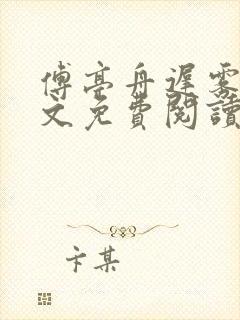 傅亭舟遲霧
文免費閱讀
卞某